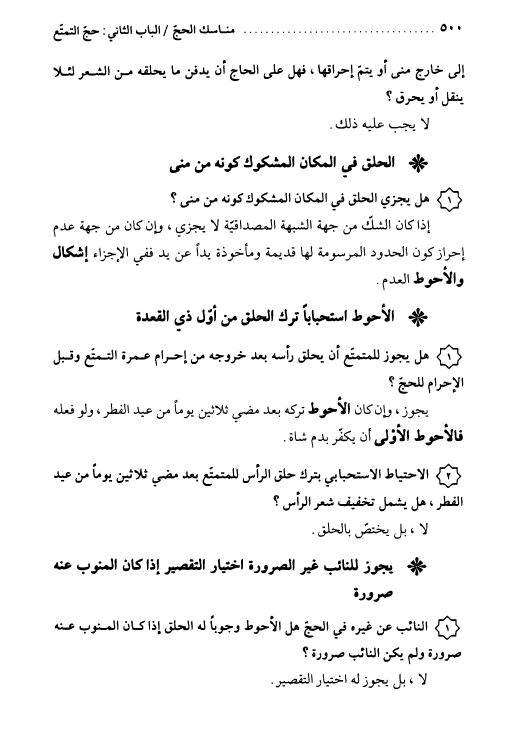 ٥٠٠ ................................... مناسك الحجّ / الباب الثاني : حجّ التمتّع
إلى خارج منى أو يتمّ إحراقها ، فهل على الحاج أن يدفن ما يحلقه من الشعر لئلا
ينقل أو يحرق ؟
لا يجب عليه ذلك .
❋ الحلق في المكان المشكوك كونه من منى
١ هل يجزي الحلق في المكان المشكوك كونه من منى ؟
إذا كان الشكّ من جهة الشبهة المصداقيّة لا يجزي ، وإن كان من جهة عدم
إحراز كون الحدود المرسومة لها قديمة ومأخوذة يداً عن يد ففي الإجزاء إشكال
والأحوط العدم .
❋ الأحوط استحباباً ترك الحلق من أوّل ذي القعدة
١ هل يجوز للمتمتّع أن يحلق رأسه بعد خروجه من إحرام عمرة التمتّع وقبل
الإحرام للحجّ ؟
يجوز ، وإن كان الأحوط تركه بعد مضي ثلاثين يوماً من عيد الفطر ، ولو فعله
فالأحوط الأوْلى أن يكفّر بدم شاة .
٢ الاحتياط الاستحبابي بترك حلق الرأس للمتمتّع بعد مضي ثلاثين يوماً من عيد
الفطر ، هل يشمل تخفيف شعر الرأس ؟
لا ، بل يختصّ بالحلق .
❋ يجوز للنائب غير الصرورة اختيار التقصير إذا كان المنوب عنه
صرورة
١ النائب عن غيره في الحجّ هل الأحوط وجوباً له الحلق إذا كان المنوب عنه
صرورة ولم يكن النائب صرورة ؟
لا ، بل يجوز له اختيار التقصير .